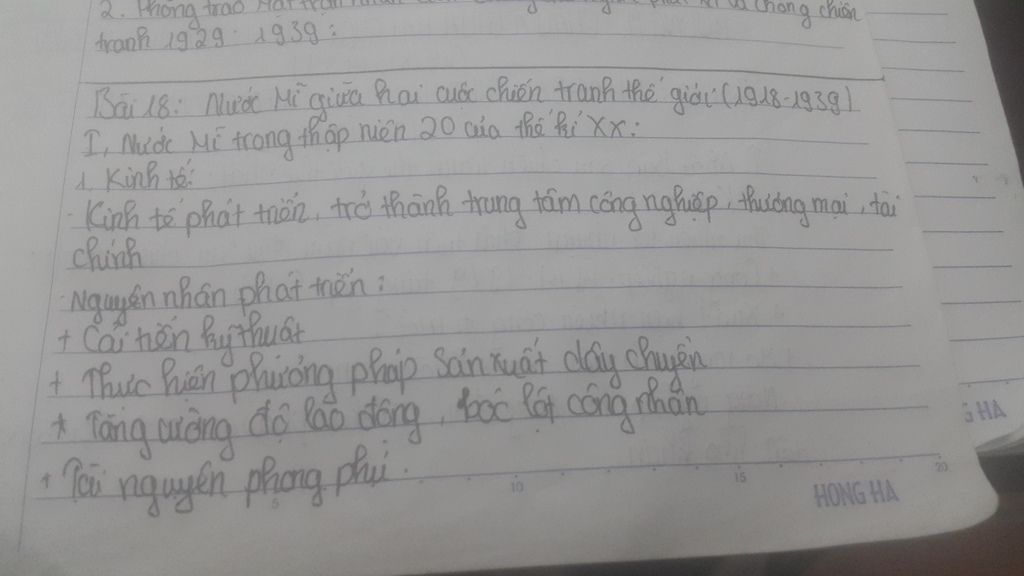 2. Phong trào Mặt trận nhân
chống chiến
tranh 1929-1939:
Bài 18: Nước Mĩ giữa hai cuộc chiến tranh thế giới (1918-1939)
I, Nước Mĩ trong thập niên 20 của thế kỉ XX:
1. Kinh tế:
- Kinh tế phát triển, trở thành trung tâm công nghiệp, thương mại, tài
chính
- Nguyên nhân phát triển:
+ Cải tiến kỹ thuật
+ Thực hiện phương pháp sản xuất dây chuyền
+ Tăng cường độ lao động, bóc lột công nhân
+ Tài nguyên phong phú.
5 10 15 20
HONG HA
G HA